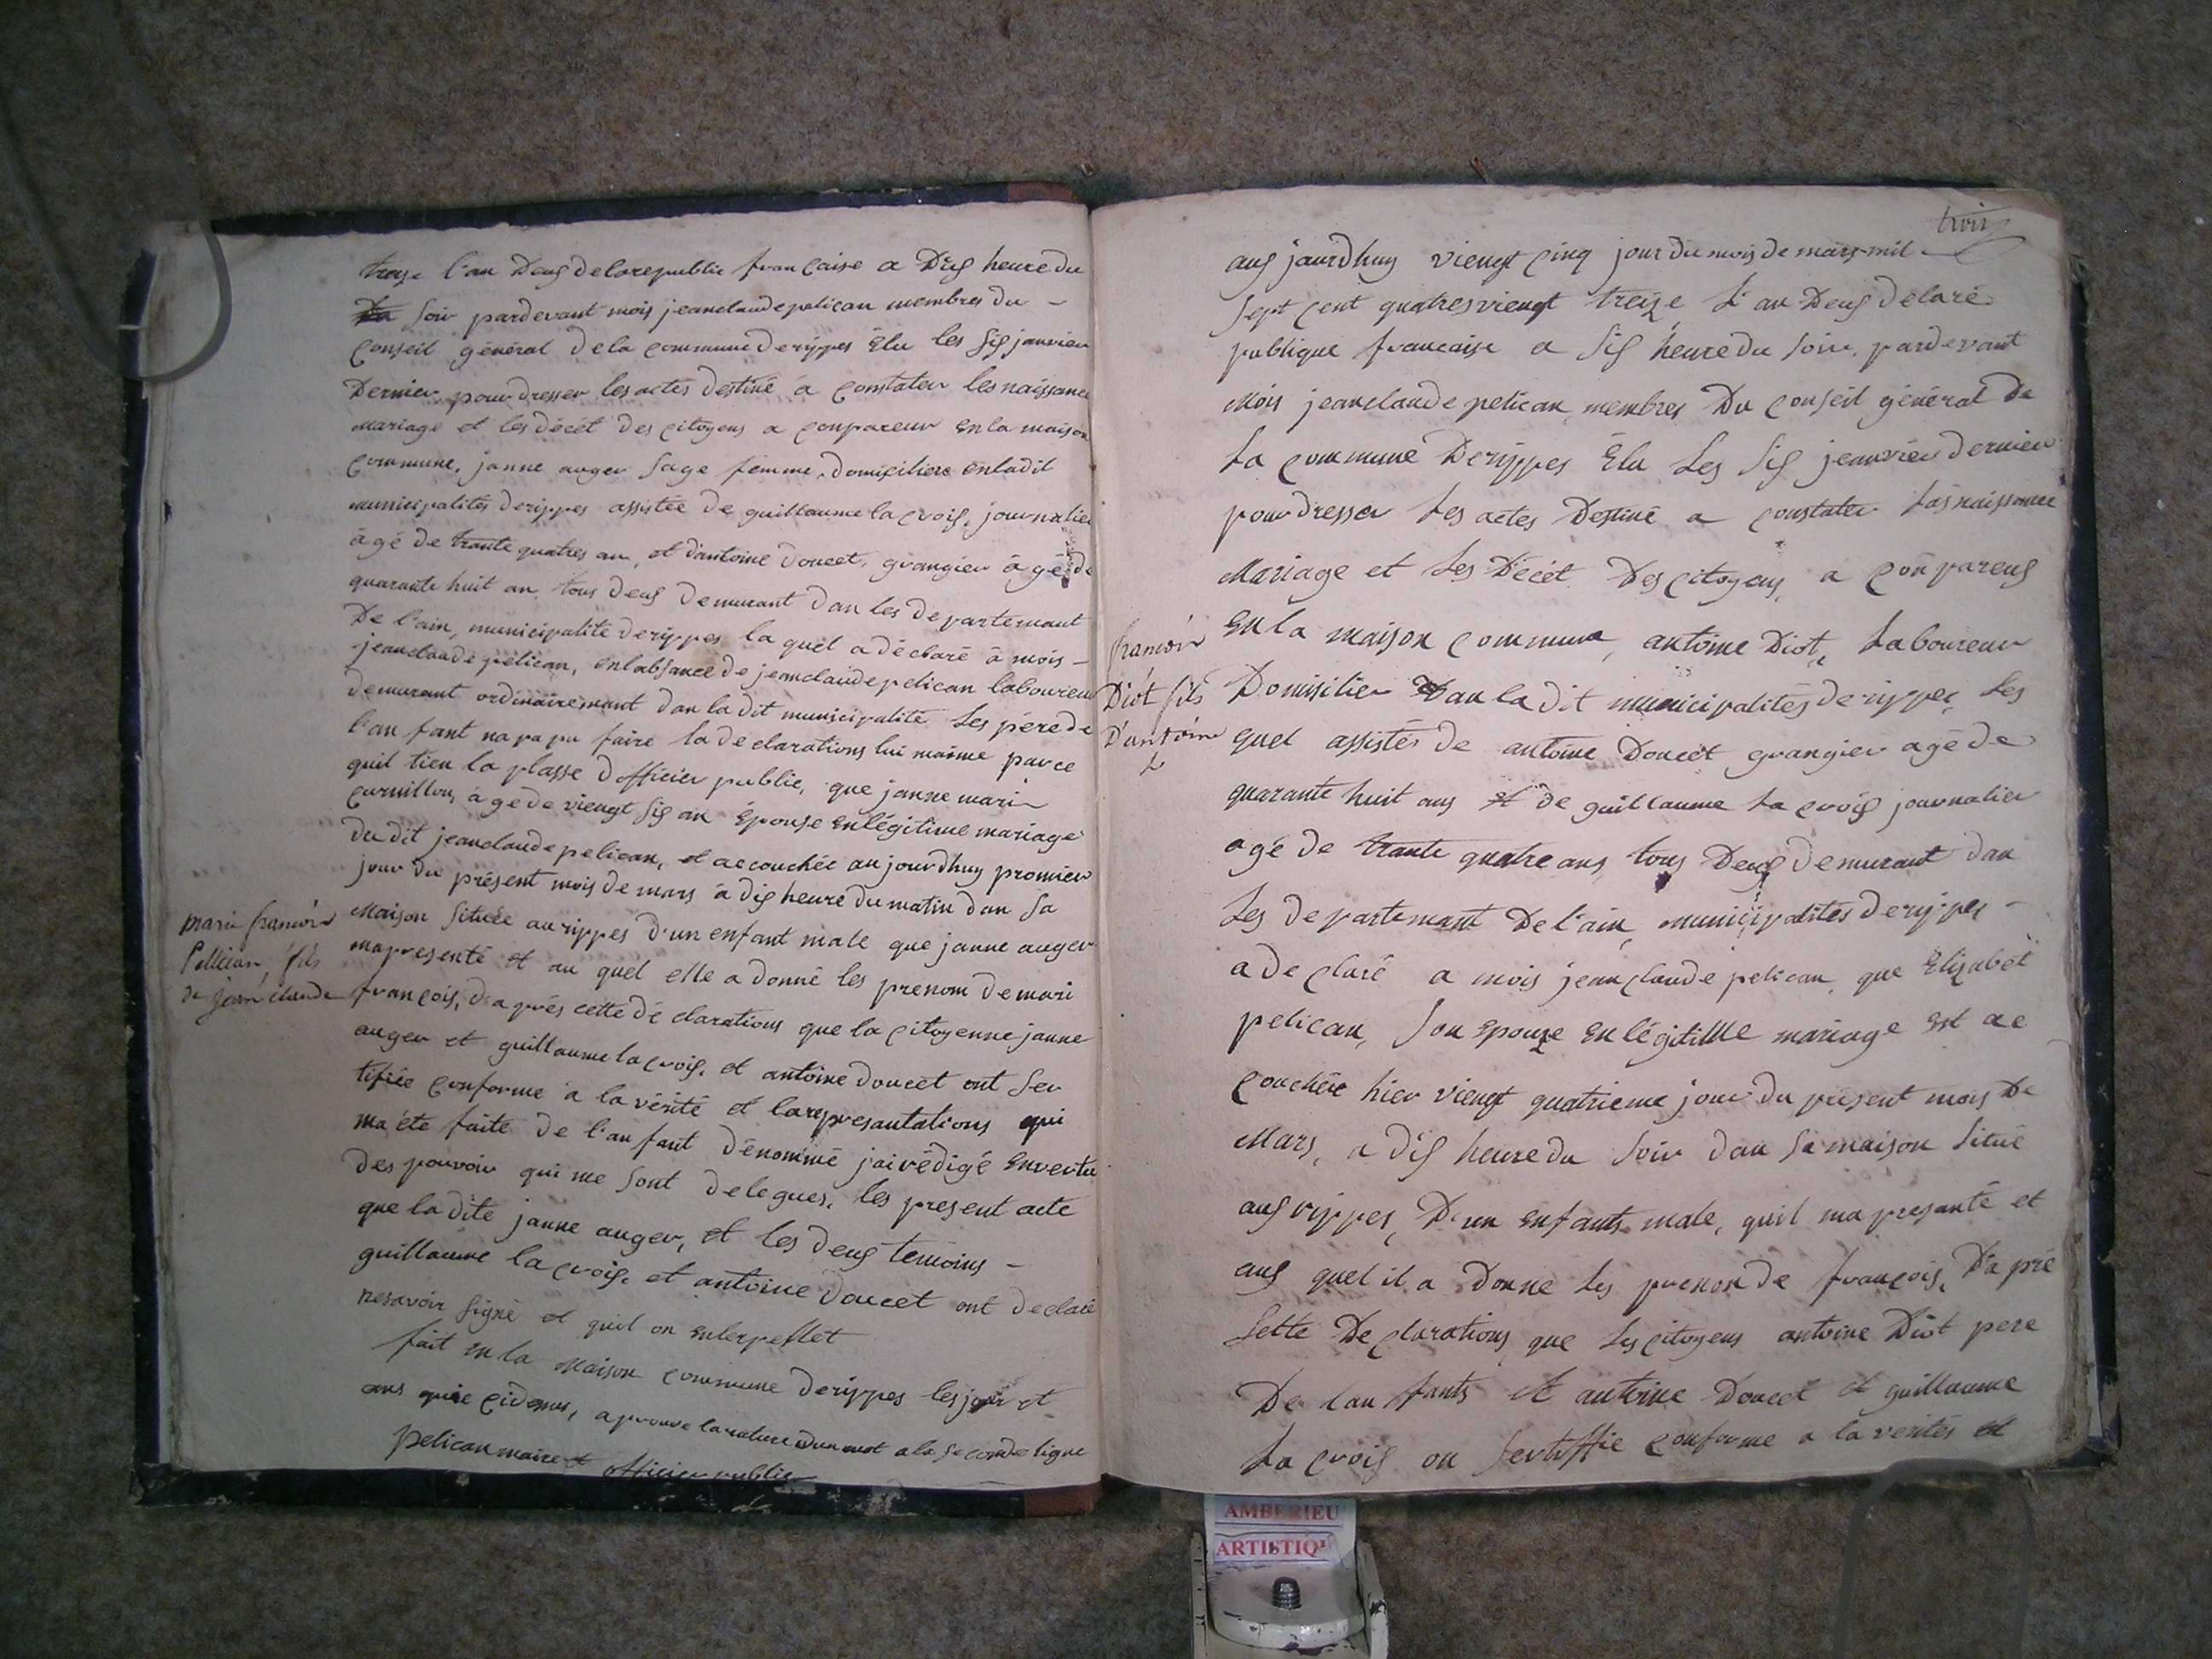 treize l'an Deus delarepublic francaise a Dis heure du
Da Soir pardevant mois jeanclaude pelican membres du -
Conseil général dela commune derippes Élu les Sis janvier
Dernier pour dresser les actes destiné a constater les naissance
Mariage et les décét Des citoyens a compareus En la maison
Commune, janne auger Sage femme Domisiliere enladit
municipalités derippes assistée de guillaume la crois, journalier
âgé de trante quatres an, et d'antoine doucet, grangier âgé de
quarante huit an, tous deus demurant dan les departemant
De l'ain, municipalité derippes la quel a déclaré à mois -
jeanclaude pelican, enlabsance de jeanclaude pelican laboureur
demurant ordinairemant dan la dit municipalité Les pére de
l'an fant na pa pu faire la declarations lui maime parce
quil tien la plasse d'officier public, que janne mari
Curnillon, âgé de viengt sis an Épouse En légitime mariage
du dit jeanclaude pelican, et accouchée aujourdhuy promier
jour du présent mois de mars à dis heure du matin dan Sa
Maison Située au rippes d'un enfant male que janne auger
ma presenté et au quel elle a donné les prenom de mari
françois, d'aprés cette dé clarations que la citoyenne janne
auger et guillaume la crois, et antoine doucet ont Ser
tifiée conforme à la vérité et la represantations qui
ma été faite de l'an fant dénommé j'ai rédigé En vertu
des pouvoir qui me sont delegues, les present acte
que la dite janne auger, et les deus temoins -
guillaume la crois, et antoine doucet ont declaré
nesavoir signé et quil on enterpellet
fait en la Maison commune derippes les jour et
ans que cidesus, aprouve la rature dun mot a la seconde ligne
pelican maire et officier public
mari francois
Pellican, fils
de jean claude
trois
aus jourdhuy viengt cinq jour du mois de mars mil
Sept cent quatres viengt treize L'an Deus delaré
publique francaise a Sis heure du soir, pardevant
Mois jeanclaude pelican, membres Du conseil général de
La commune Derippes Élu Les Sis jeanvier dernier
pour dresser Les actes Destiné a constater Las naissance
Mariage et Les Décét Des citoyens, a conpareus
En la maison commune, antoine Diot, Laboureur
Domisilier Dan la dit municipalités derippes, Les
quel assistés de antoine Doucet grangier agé de
quarante huit ans et de guillaume La crois journalier
agé de trante quatre ans, tous Deus demurant dan
Les departemant De l'ain, municipalités derippes -
a de claré a mois jean claude pelican, que Elizabét
pelican, Son epouze En légitime mariage Est ac
couchée hier viengt quatrieme jour du présent mois De
Mars, a dis heure du Soir dan Sa maison Situé
aus rippes, D'un enfants male, quil ma presanté et
aus quel il a Donné Les prenon de françois, D'a pré
Sette De clarations que Les citoyens antoine Diot pere
De l'an fants et antoine Doucet et guillaume
La crois on Sertiffie conforme a la verités et
francois
Diot fils
D'antoine